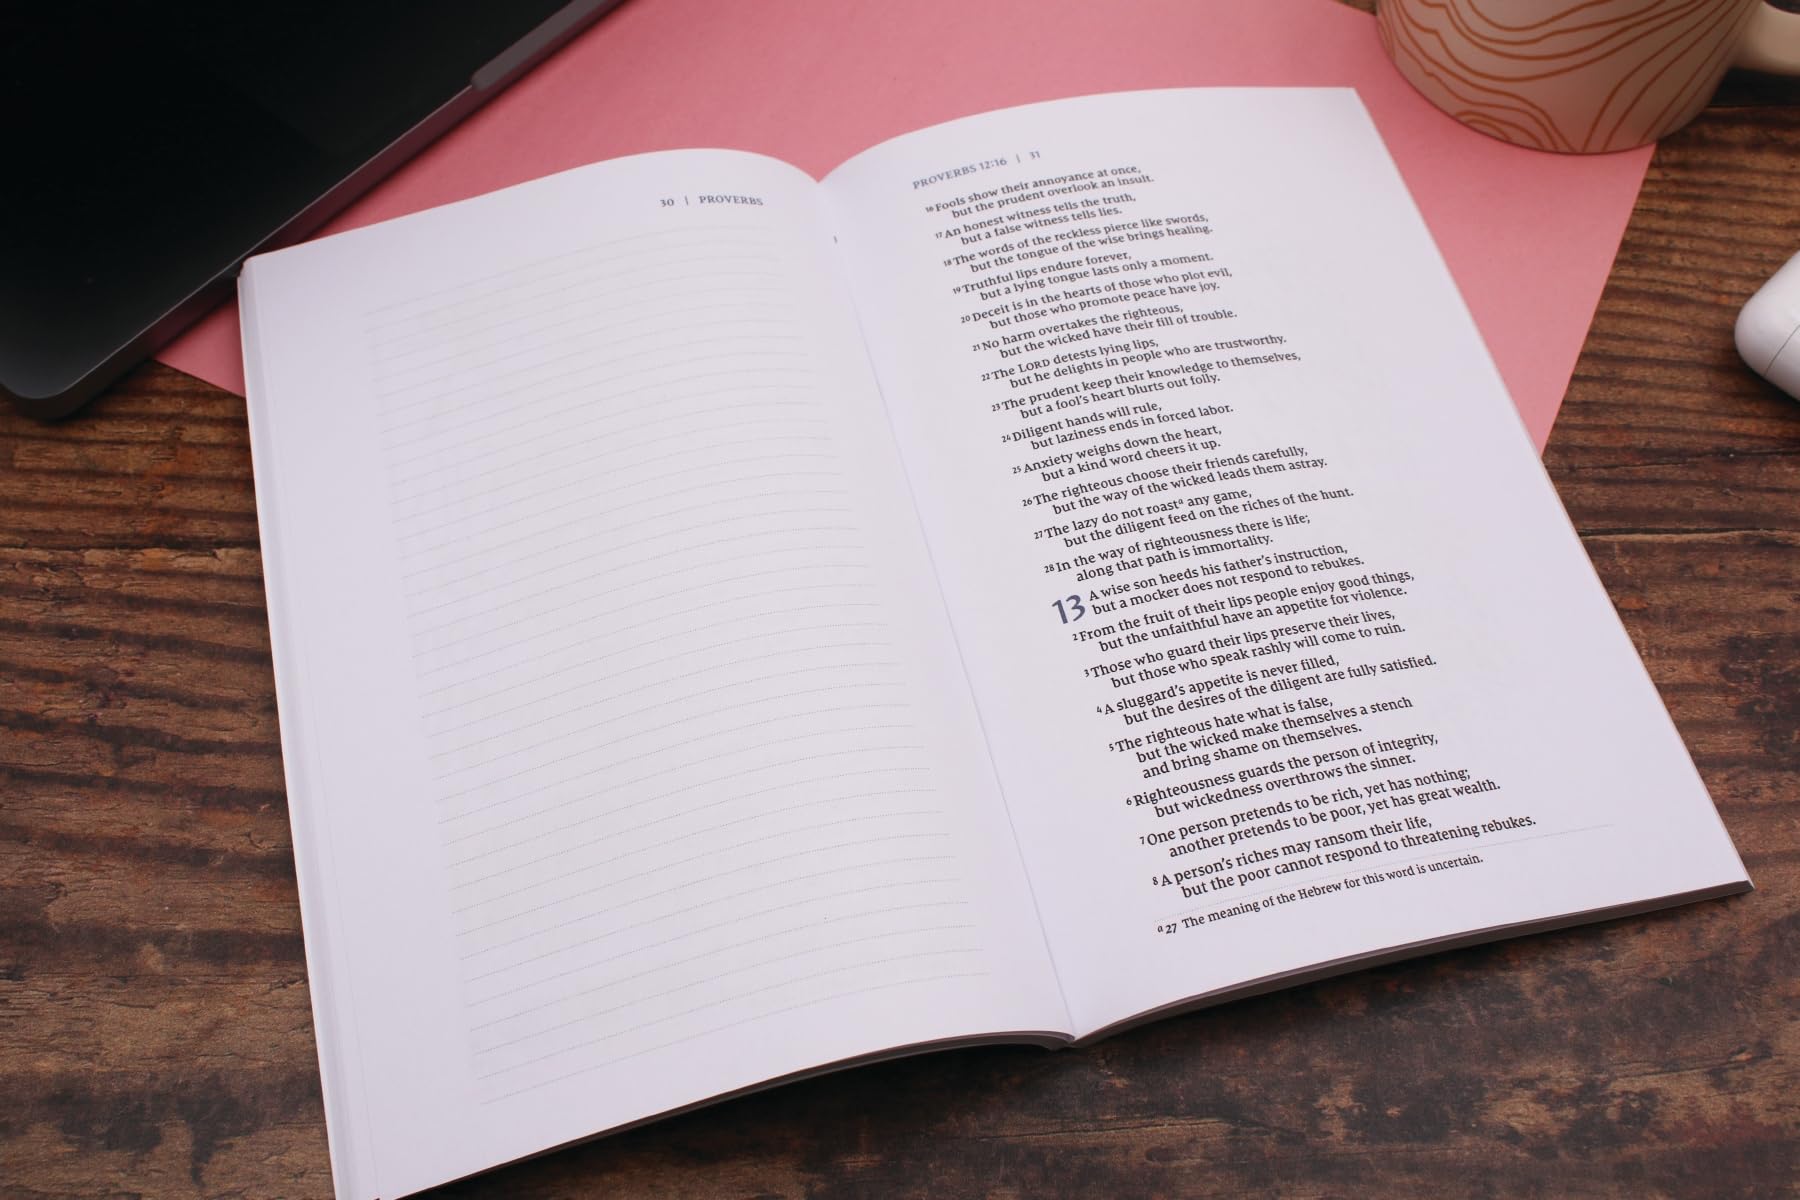 30 | PROVERBS
PROVERBS 12:16 | 31
16 Fools show their annoyance at once,
but the prudent overlook an insult.
17 An honest witness tells the truth,
but a false witness tells lies.
18 The words of the reckless pierce like swords,
but the tongue of the wise brings healing.
19 Truthful lips endure forever,
but a lying tongue lasts only a moment.
20 Deceit is in the hearts of those who plot evil,
but those who promote peace have joy.
21 No harm overtakes the righteous,
but the wicked have their fill of trouble.
22 The LORD detests lying lips,
but he delights in people who are trustworthy.
23 The prudent keep their knowledge to themselves,
but a fool's heart blurts out folly.
24 Diligent hands will rule,
but laziness ends in forced labor.
25 Anxiety weighs down the heart,
but a kind word cheers it up.
26 The righteous choose their friends carefully,
but the way of the wicked leads them astray.
27 The lazy do not roast a any game,
but the diligent feed on the riches of the hunt.
28 In the way of righteousness there is life;
along that path is immortality.
13 A wise son heeds his father's instruction,
but a mocker does not respond to rebukes.
2 From the fruit of their lips people enjoy good things,
but the unfaithful have an appetite for violence.
3 Those who guard their lips preserve their lives,
but those who speak rashly will come to ruin.
4 A sluggard's appetite is never filled,
but the desires of the diligent are fully satisfied.
5 The righteous hate what is false,
but the wicked make themselves a stench
and bring shame on themselves.
6 Righteousness guards the person of integrity,
but wickedness overthrows the sinner.
7 One person pretends to be rich, yet has nothing;
another pretends to be poor, yet has great wealth.
8 A person's riches may ransom their life,
but the poor cannot respond to threatening rebukes.
a 27 The meaning of the Hebrew for this word is uncertain.